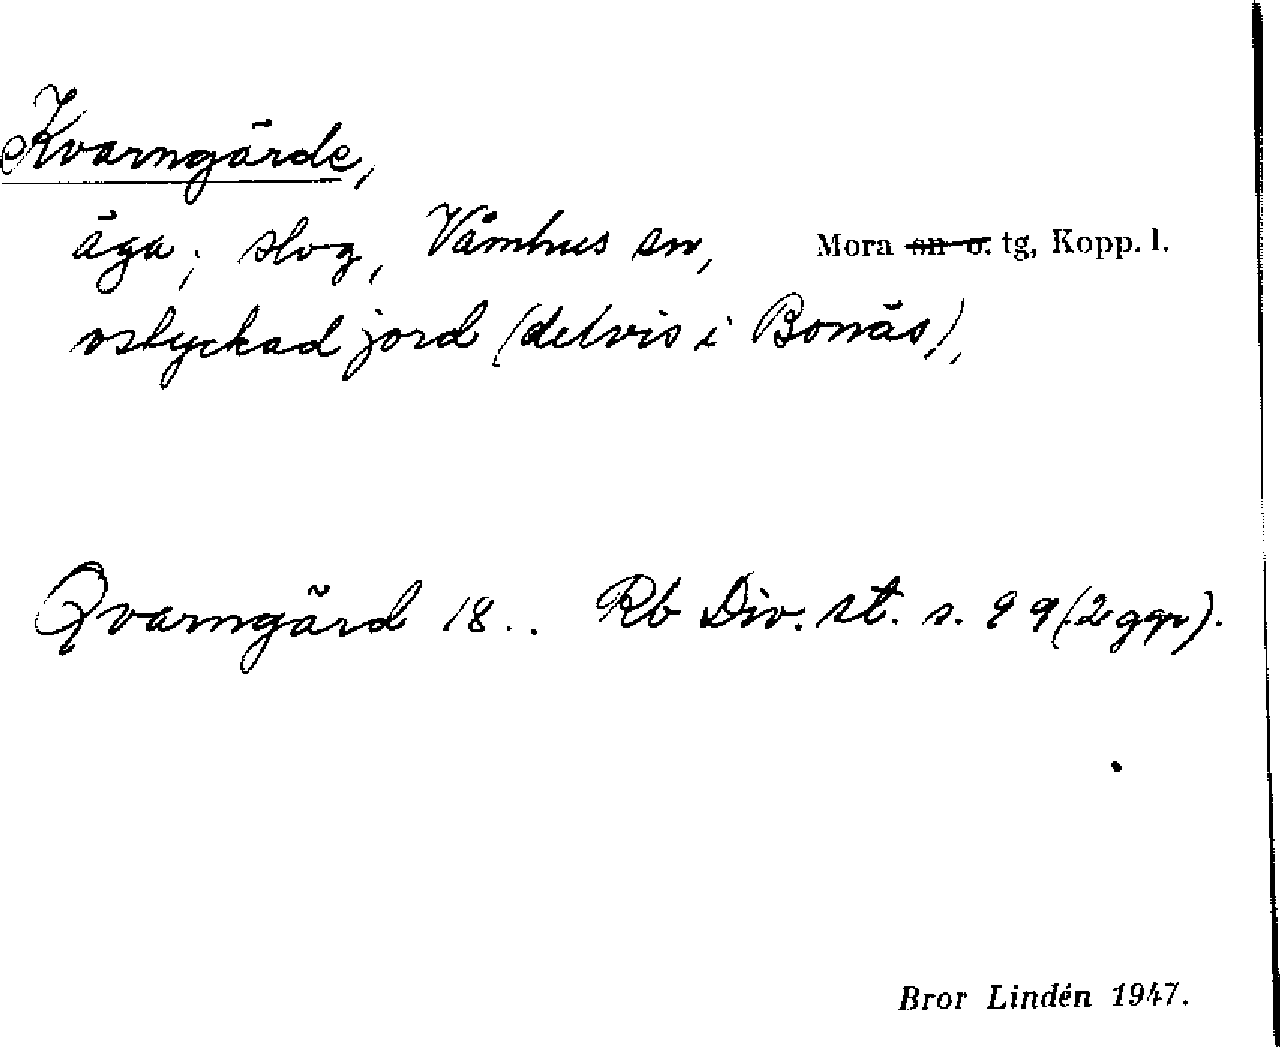 Kvarngärde,
äga; slog, Våmhus sn, Mora sn o. tg, Kopp. l.
ostyckad jord (delvis i Bonäs),
Qvarngärd 18.. Rb Div. st. s. 99 (2 ggr).
Bror Lindén 1947.